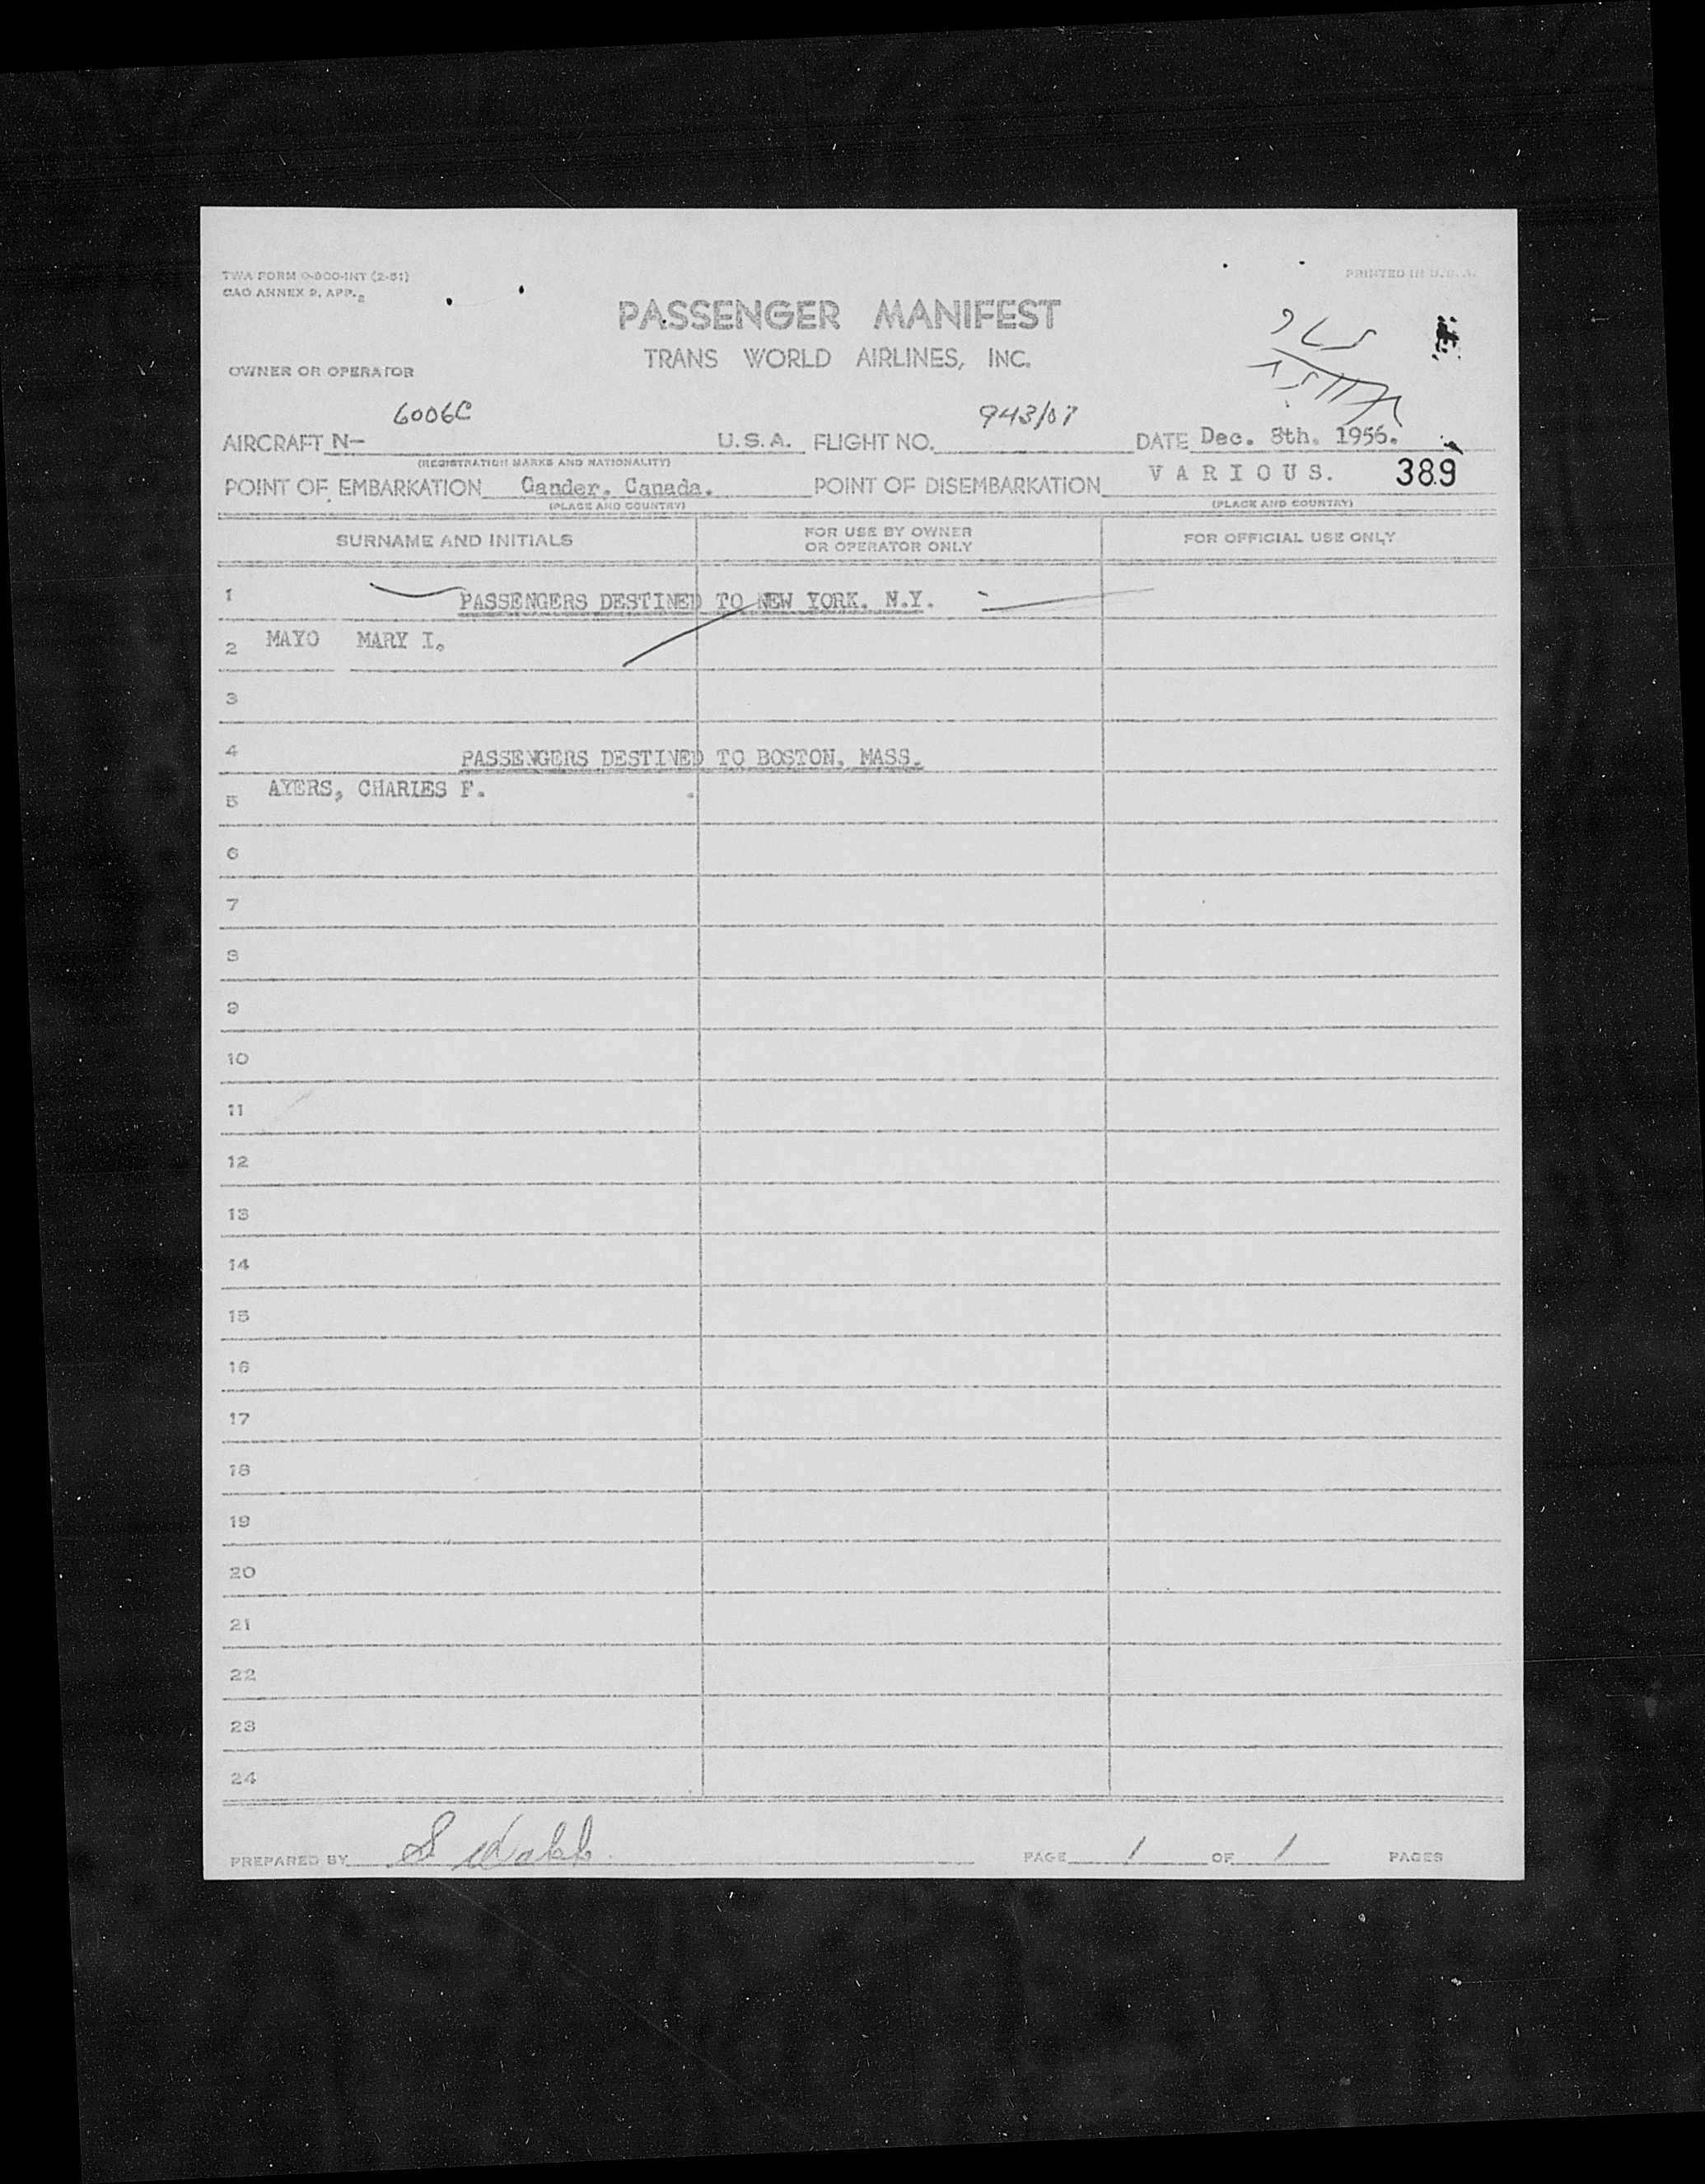 TWA FORM O-900-INT (2-51)
CAO ANNEX 9, APP. 2
PRINTED IN U.S.A.
PASSENGER MANIFEST
TRANS WORLD AIRLINES, INC.
OWNER OR OPERATOR
6006C 943/07
AIRCRAFT N- U.S.A. FLIGHT NO. DATE Dec. 8th. 1956.
(REGISTRATION MARKS AND NATIONALITY)
POINT OF EMBARKATION Gander, Canada. POINT OF DISEMBARKATION VARIOUS. 389
(PLACE AND COUNTRY) (PLACE AND COUNTRY)
SURNAME AND INITIALS FOR USE BY OWNER OR OPERATOR ONLY FOR OFFICIAL USE ONLY
1 PASSENGERS DESTINED TO NEW YORK, N.Y.
2 MAYO MARY I.
3
4 PASSENGERS DESTINED TO BOSTON, MASS.
5 AYERS, CHARLES F.
6
7
8
9
10
11
12
13
14
15
16
17
18
19
20
21
22
23
24
PREPARED BY S Webb PAGE 1 OF 1 PAGES